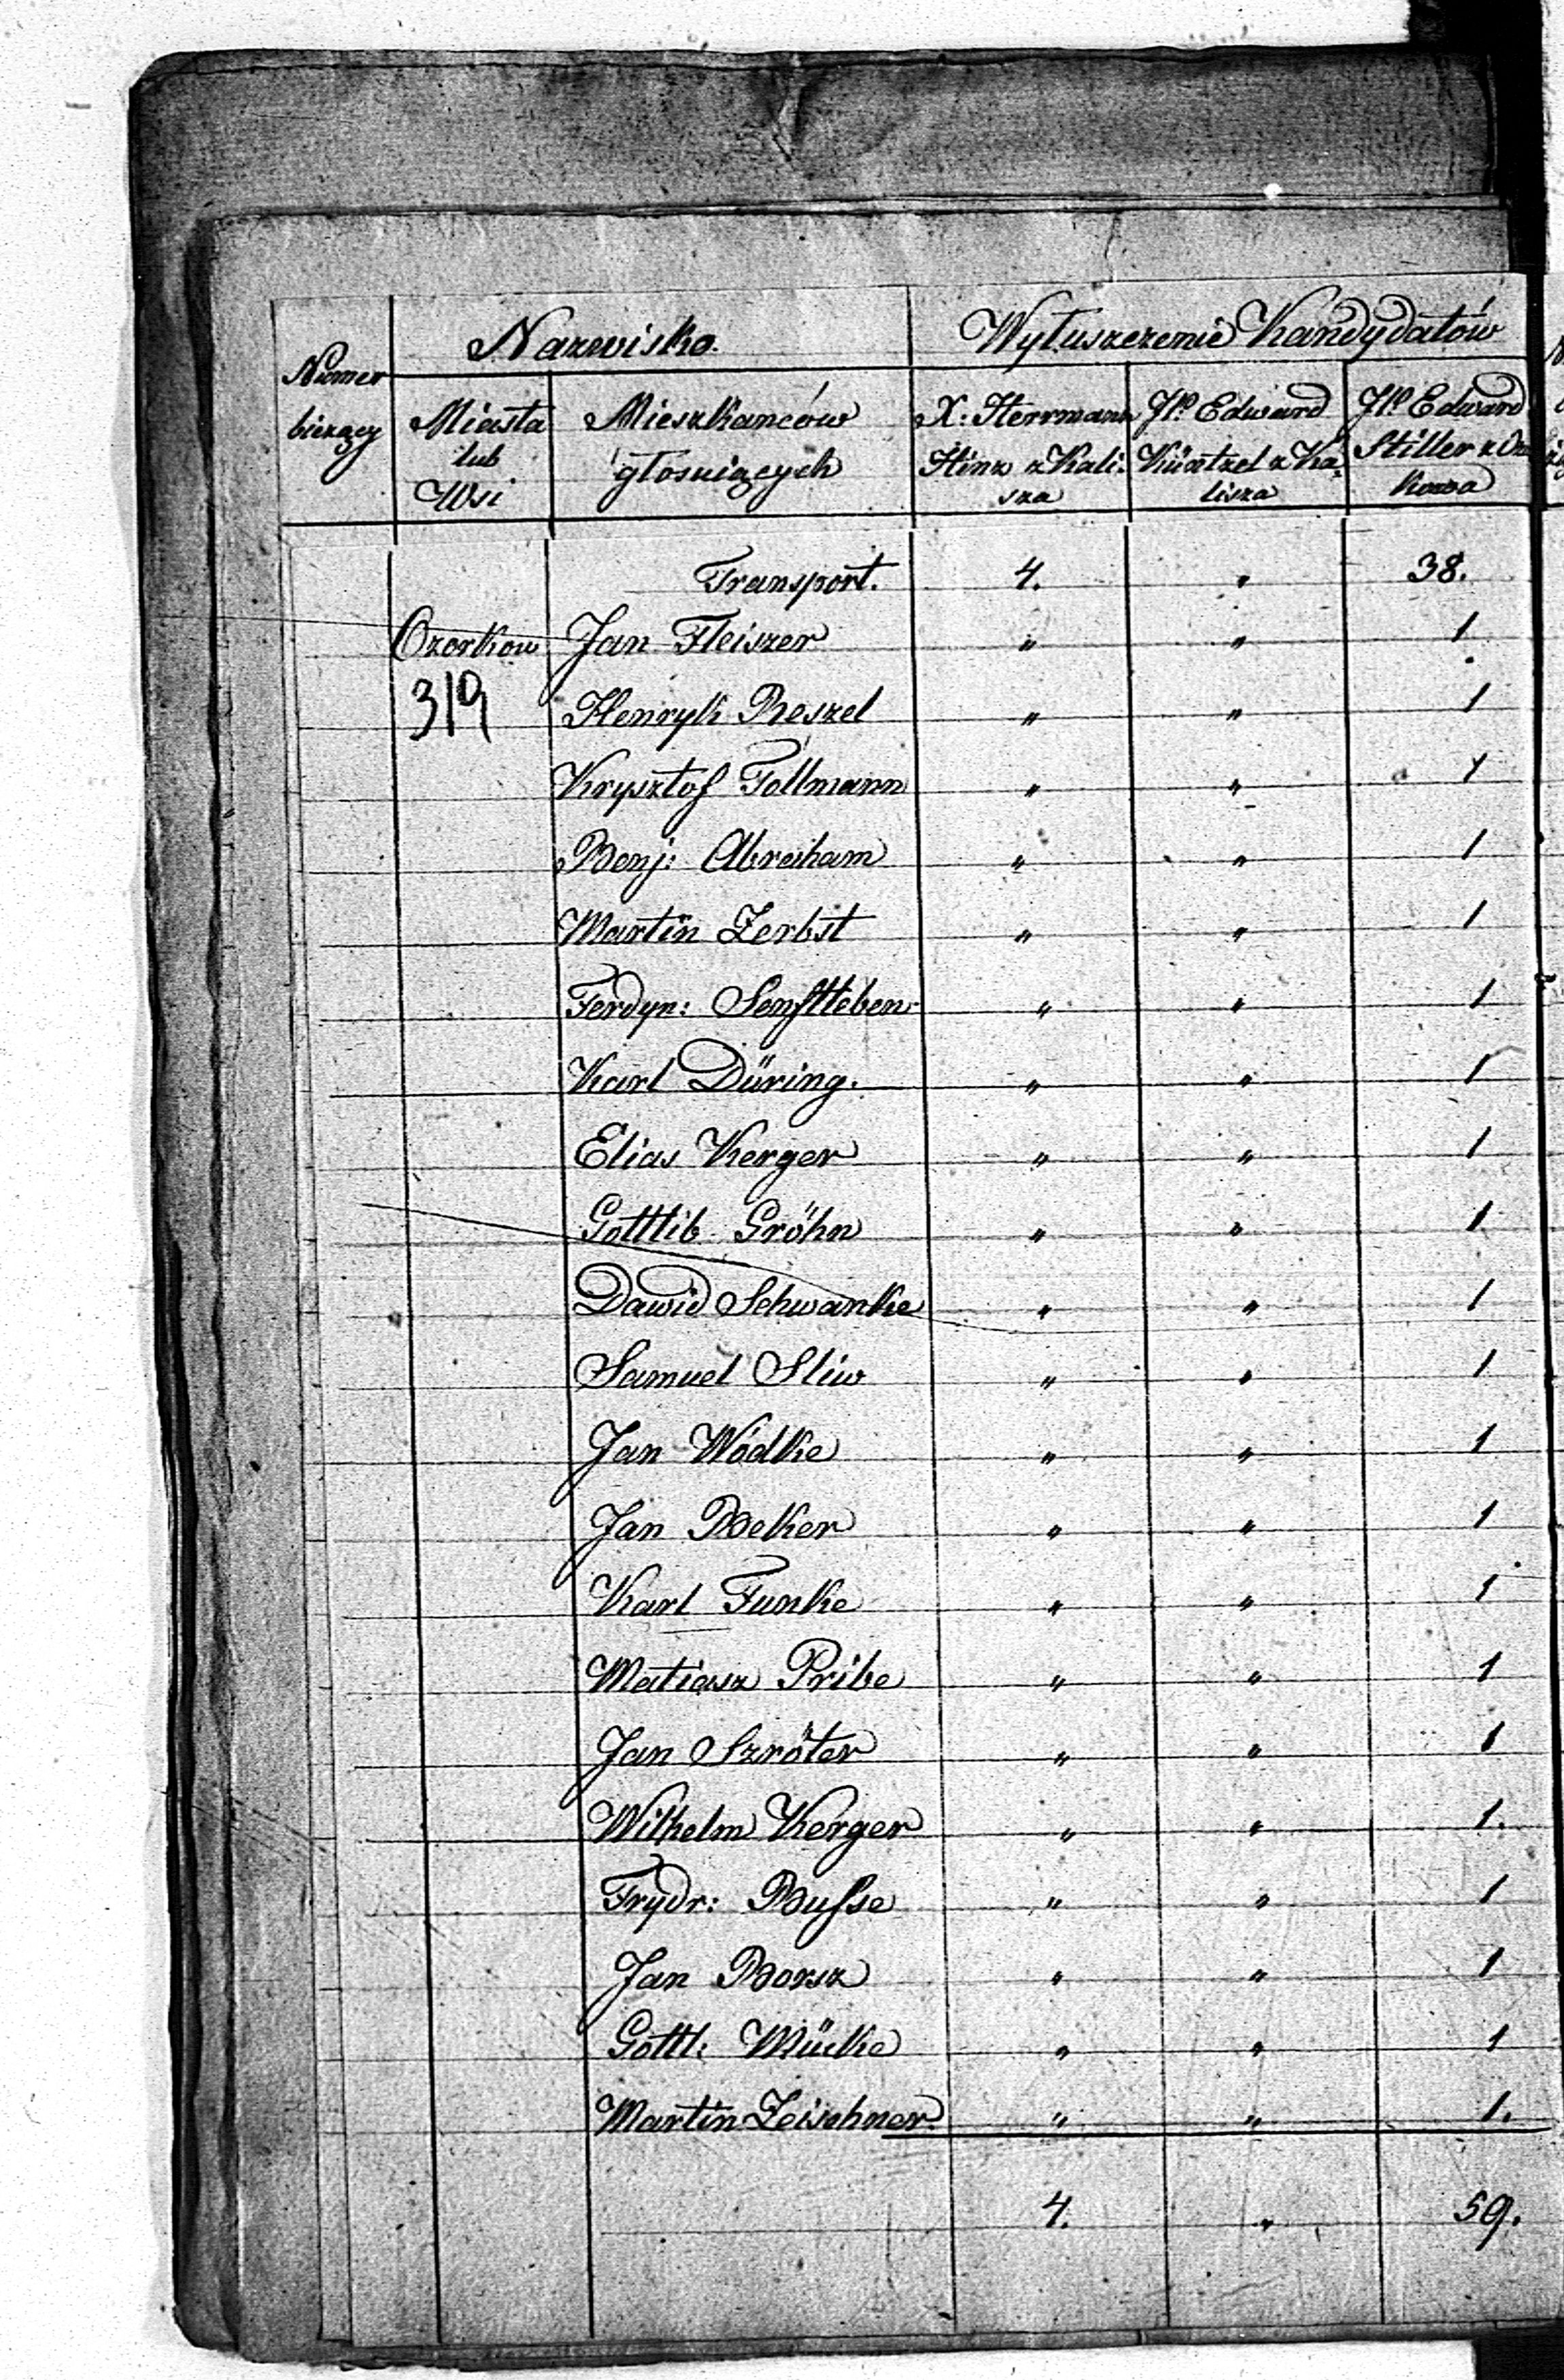 Nazwisko. Wyłuszczenie Kandydatów
Numer
bieżący
Miasta
lub
Wsi
Mieszkańców
głosuiących
X: Herrmann
Hinz z Kali-
sza
JP Edward
Küntzel z Ka-
lisza
JP Edward
Stiller z Ozor
kowa
Transport. 4. " 38.
Ozorkow Jan Fleiszer " " 1
319 Henryk Reszel " " 1
Krysztof Tollmann " " 1
Benj: Abraham " " 1
Martin Zerbst " " 1
Ferdyn: Senftleben " " 1
Karl Düring. " " 1
Elias Kerger " " 1
Gottlib Gröhn " " 1
Dawid Schwanke " " 1
Samuel Sliw " " 1
Jan Wódke " " 1
Jan Beker " " 1
Karl Funke " " 1
Matiasz Pribe " " 1
Jan Szröter " " 1
Wilhelm Kerger " " 1.
Frydr: Busse " " 1
Jan Borsz " " 1
Gottl: Mücke " " 1
Martin Zeischner. " " 1.
4. " 59.